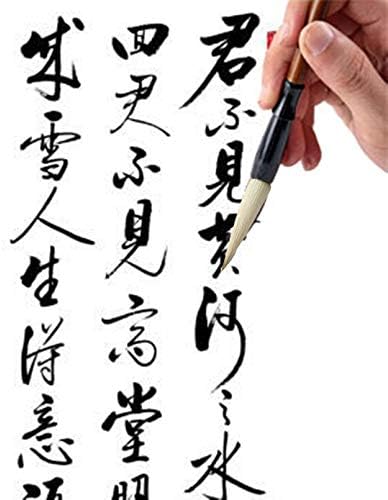 君不見黄河之水
回君不見高堂
成雪人生得意